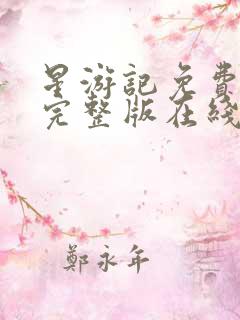 星游記免費
完整版在綫
鄭永年